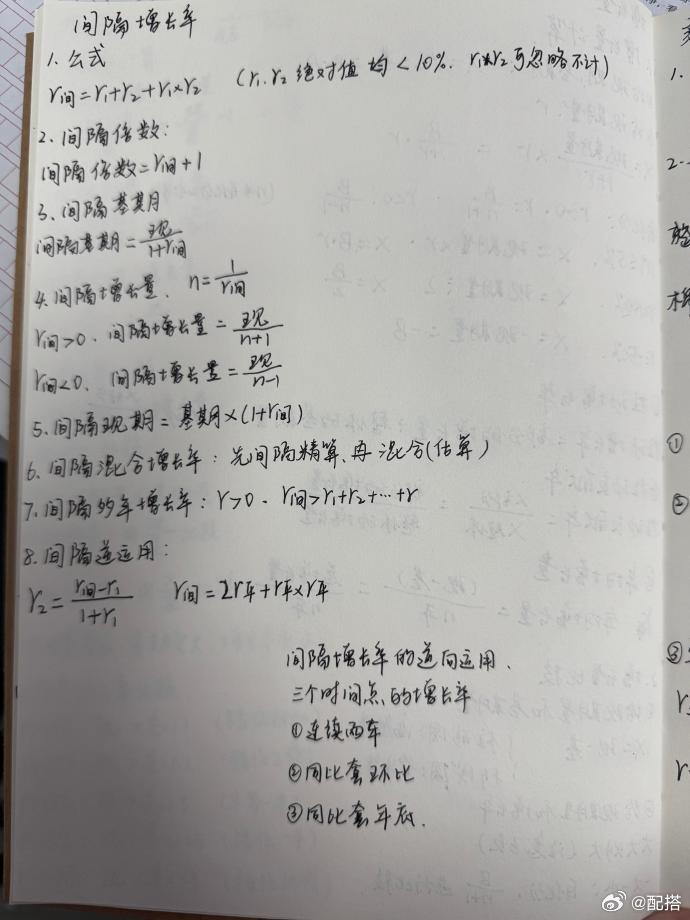 间隔增长率
1. 公式
r间=r₁+r₂+r₁×r₂ (r₁、r₂ 绝对值均<10%、r₁×r₂可忽略不计)
2. 间隔倍数:
间隔倍数=r间+1
3、间隔基期
间隔基期=现/(1+r间)
4. 间隔增长量、n=1/r间
r间>0、间隔增长量=现/(n+1)
r间<0、间隔增长量=现/(n-1)
5. 间隔现期=基期×(1+r间)
6. 间隔混合增长率:先间隔精算、再混合(估算)
7. 间隔多年增长率:r>0、r间>r₁+r₂+…+r
8. 间隔逆运用:
r₂=(r间-r₁)/(1+r₁) r间=2r平+r平×r平
间隔增长率的逆向运用、
三个时间点的增长率
①连续两年
②同比套环比
③同比套年底.
1.
2.
①
②
③
@配搭